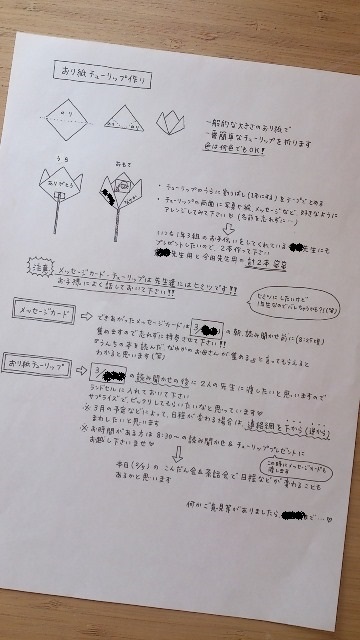 おり紙チューリップ作り
のり
のり のり
一般的な大きさのおり紙で
一番簡単なチューリップを折ります
色は何色でもOK!
うら
おもて
ありがとう
・チューリップのうらに割りばし(1本にする)をテープでとめる
・チューリップの両面に写真や絵、メッセージなど、好きなように
アレンジしてみて下さい(名前を忘れずに…)
いつも1年3組のお手伝いをしてくれている 先生にも
プレゼントしたいので、2本作って下さい
先生用と 先生用の 計2本
注意 メッセージカード・チューリップは先生達にはヒミツです!!
お子様によく話しておいて下さい!!
ヒミツにしたいけど
1年生なのでバレちゃうかも?!(笑)
メッセージカード
できあがったメッセージカードは 3/ の朝、読み聞かせ前に(8:25頃)
集めますので忘れずに持参させて下さい!!
(笑)
おり紙チューリップ
3/ の読み聞かせの後に2人の先生に渡したいと思いますので
ランドセルに入れておいて下さい
サプライズで、ビックリしてもらいたいなと思っています
※3月の予定などによって、日程が変わる場合は、連絡網を下から(逆から)
まわしたいと思います
※お時間がある方は 8:30〜の読み聞かせ&チューリッププレゼントに
お越し下さいませ
この時にメッセージカードも
渡します
本日(3/5)の こんだん会&茶話会で日程などが変わることも
あるかと思います
何かご意見等がありましたら、 まで…